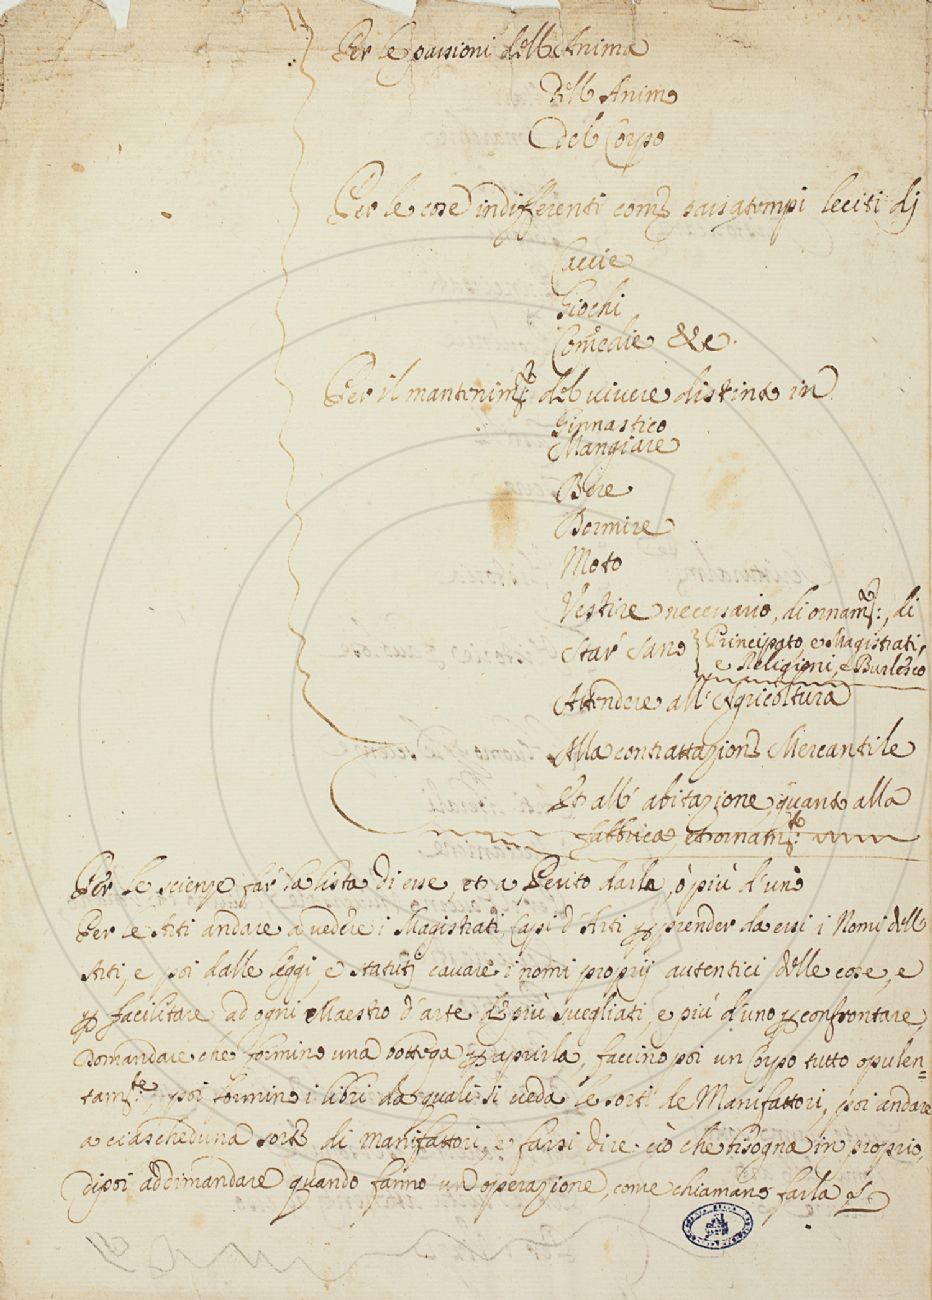 Per le passioni dell'Anima
Dell'Animo
del Corpo
Per le cose indifferenti come passatempi leciti di
Caccie
Giochi
Comedie &c.
Per il mantenimto: del vivere distinto in
Ginnastico
Mangiare
Bere
Dormire
Moto
Vestire necessario, di ornamto:, di
Star sano Principato, e Magistrati,
e Religioni, e Burlesco
Attendere all'Agricoltura
Alla contrattazione Mercantile
Et all'abitazione quanto alla
fabbrica et ornamto:
Per le scienze far la lista di esse, et a Perito darla, ò più d'uno
Per le Arti andare a vedere i Magistrati, Capi d'Arti p prender da essi i Nomi dell'
Arti, e poi dalle leggi, e statuti cavare i nomi proprij autentici delle cose, e
p facilitare ad ogni Maestro d'arte i più svegliati, e più d'uno p confrontare,
Domandare che formino una bottega p aprirla, faccino poi un Corpo tutto opulen=
tamte:, poi formino i libri da quali si veda le sorti de Manifattori, poi andare
a ciascheduna sorte di manifattori, e farsi dire ciò che bisogna in proprio,
dipoi addimandare quando fanno un'operazione, come chiamano farla &c